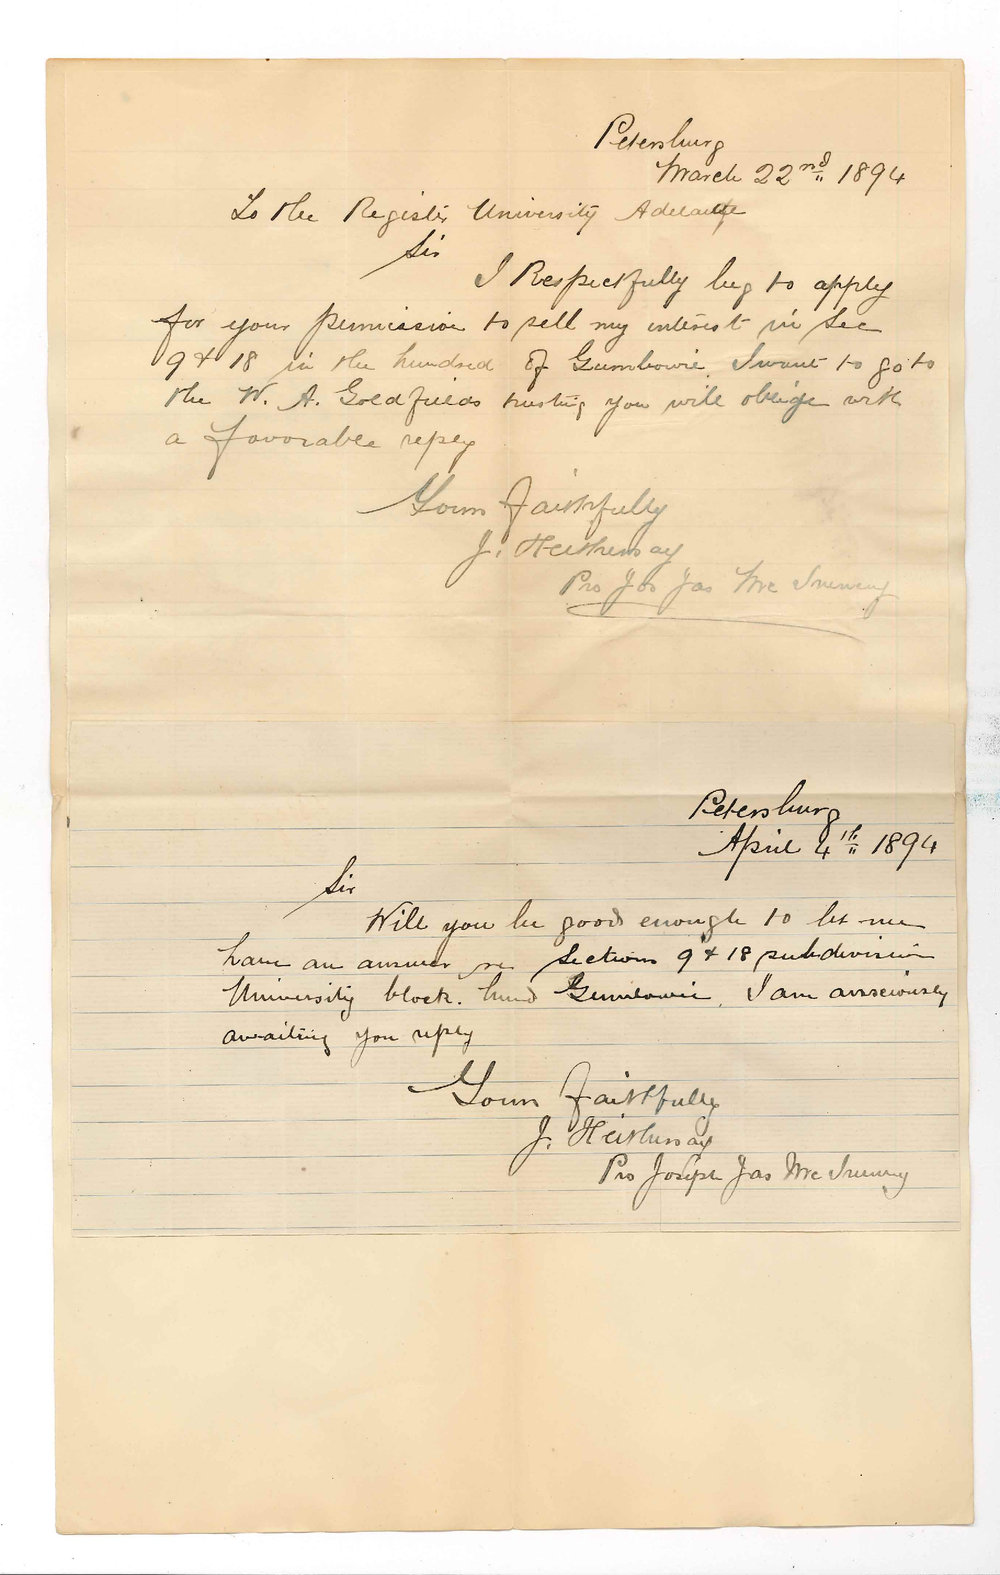 Petersburg
March 22nd 1894
To the Register University Adelaide
Sir
I Respectfully beg to apply
for your permission to sell my interest in Sec
9 & 18 in the hundred of Gumbowie. I want to go to
the W. A. Goldfields trusting you will oblige with
a favorable reply
Yours Faithfully
J. Heithersay
Pro Jos Jas McInerney
Petersburg
April 4th 1894
Sir
Will you be good enough to let me
have an answer re Sections 9 & 18 subdivision
University block. hund Gumbowie. I am anxiously
awaiting you reply
Yours Faithfully
J. Heithersay
Pro Joseph Jas McInerney